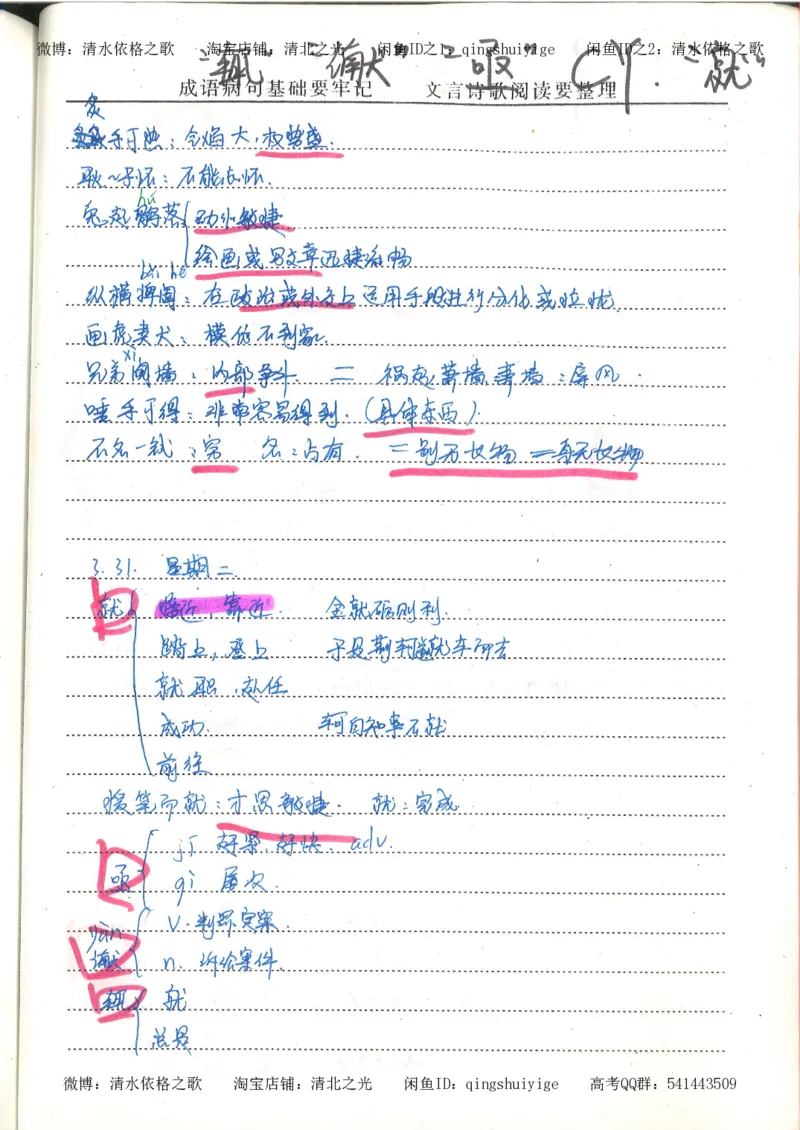 微博：清水依格之歌 淘宝店铺：清北之光 闲鱼ID之1：qingshuiyige 闲鱼ID之2：清水依格之歌
“辄” “谳” “亟” CY. “就”
成语病句基础要牢记 文言诗歌阅读要整理
炙手可热：气焰大，权势盛.
耿耿于怀：不能忘怀.
hú
兔起鹘落 动作敏捷
绘画或写文章迅捷流畅
bǎi hé
纵横捭阖：在政治或外交上运用手段进行分化或拉拢.
画虎类犬：模仿不到家.
xì
兄弟阋墙：内部争斗. = 祸起萧墙 萧墙：屏风.
唾手可得：非常容易得到.（具体东西）.
不名一钱：穷 名：占有. = 别无长物 = 身无长物
3.31. 星期二
就 接近，靠近. 金就砺则利.
踏上，登上 于是荆轲遂就车而去
就职，赴任
成功. 轲自知事不就
前往
援笔而就：才思敏捷. 就：完成
亟 jí 好紧，好快. adv.
qì 屡次.
yàn
谳 v. 判罪定案.
n. 诉讼案件.
辄 就
总是
微博：清水依格之歌 淘宝店铺：清北之光 闲鱼ID：qingshuiyige 高考QQ群：541443509